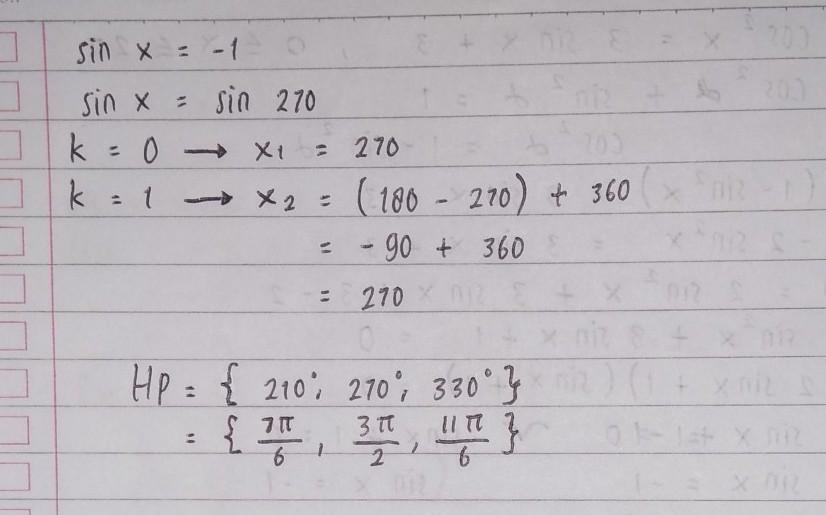 sin x = -1
sin x = sin 270
k = 0 → x₁ = 270
k = 1 → x₂ = (180 - 270) + 360
= -90 + 360
= 270
Hp = { 210°; 270°; 330° }
= { 7π/6 , 3π/2 , 11π/6 }